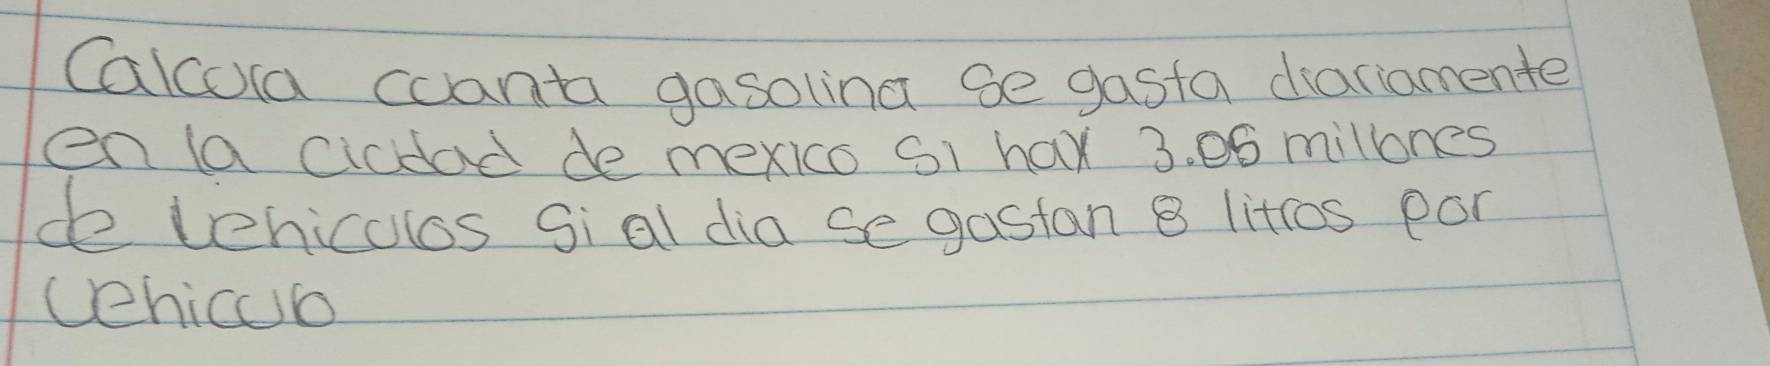 Calcula cuanta gasolina se gasta diariamente
en la ciudad de mexico si hay 3.05 millones
de vehiculos si al dia se gastan 8 litros por
vehiculo